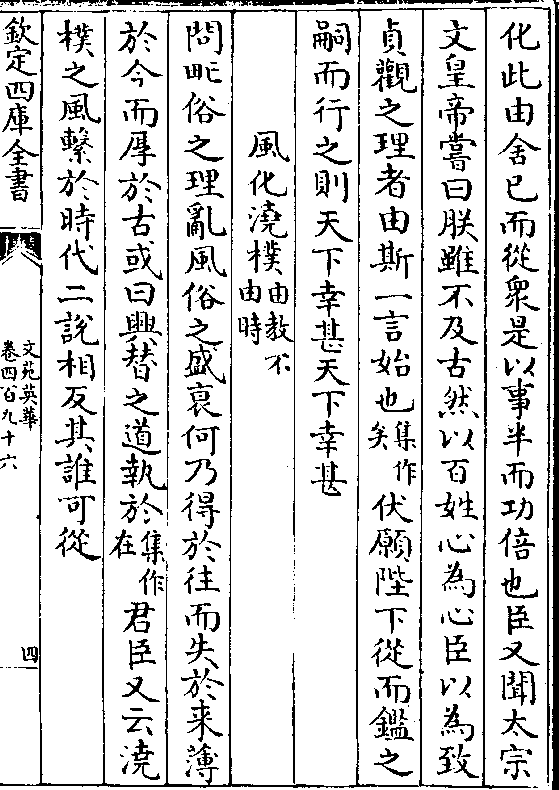 化此由舍已而從衆是以事半而功倍也臣又聞太宗
文皇帝嘗曰朕雖不及古然以百姓心為心臣以為致
貞觀之理者由斯一言始也集作矣伏願陛下從而鑑之
嗣而行之則天下幸甚天下幸甚
風化澆樸由教不由時
問甿俗之理亂風俗之盛衰何乃得於往而失於来薄
於今而厚於古或曰興替之道執於集作在君臣又云澆
樸之風繫於時代二說相反其誰可從
欽定四庫全書
文苑英華
卷四百九十六
四